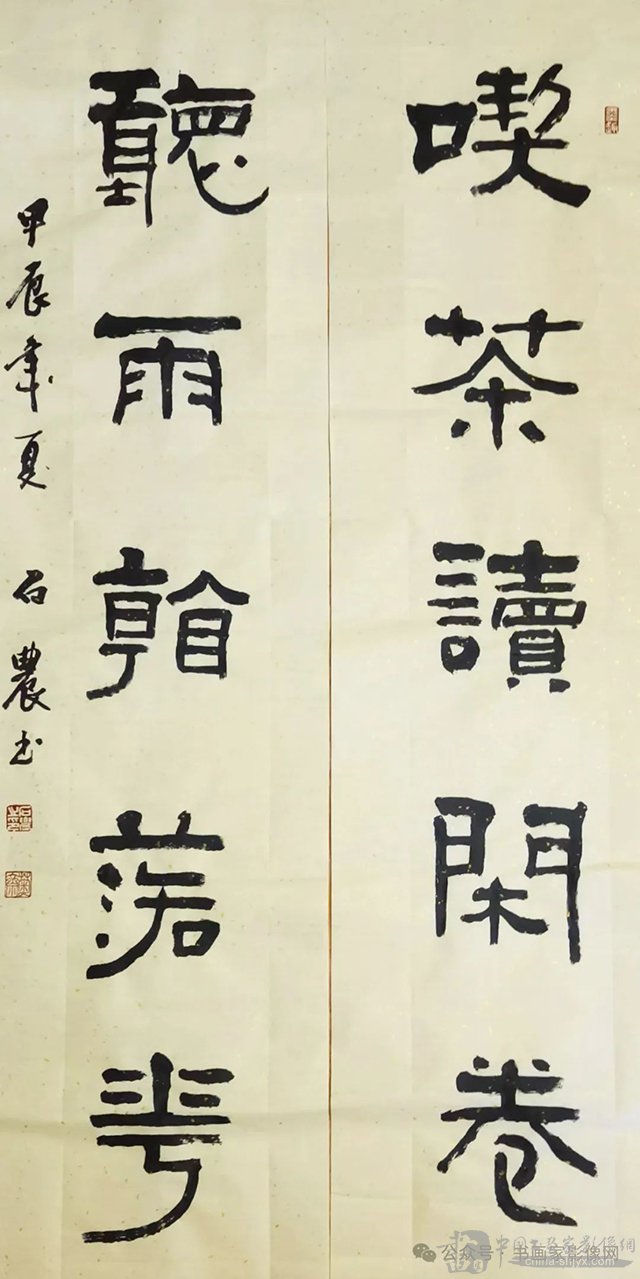 喫茶讀閑卷
聽雨看落花
甲辰年夏 石農书
公众号 · 书画家影像网
中国书画家影像網
china-shjyx.com